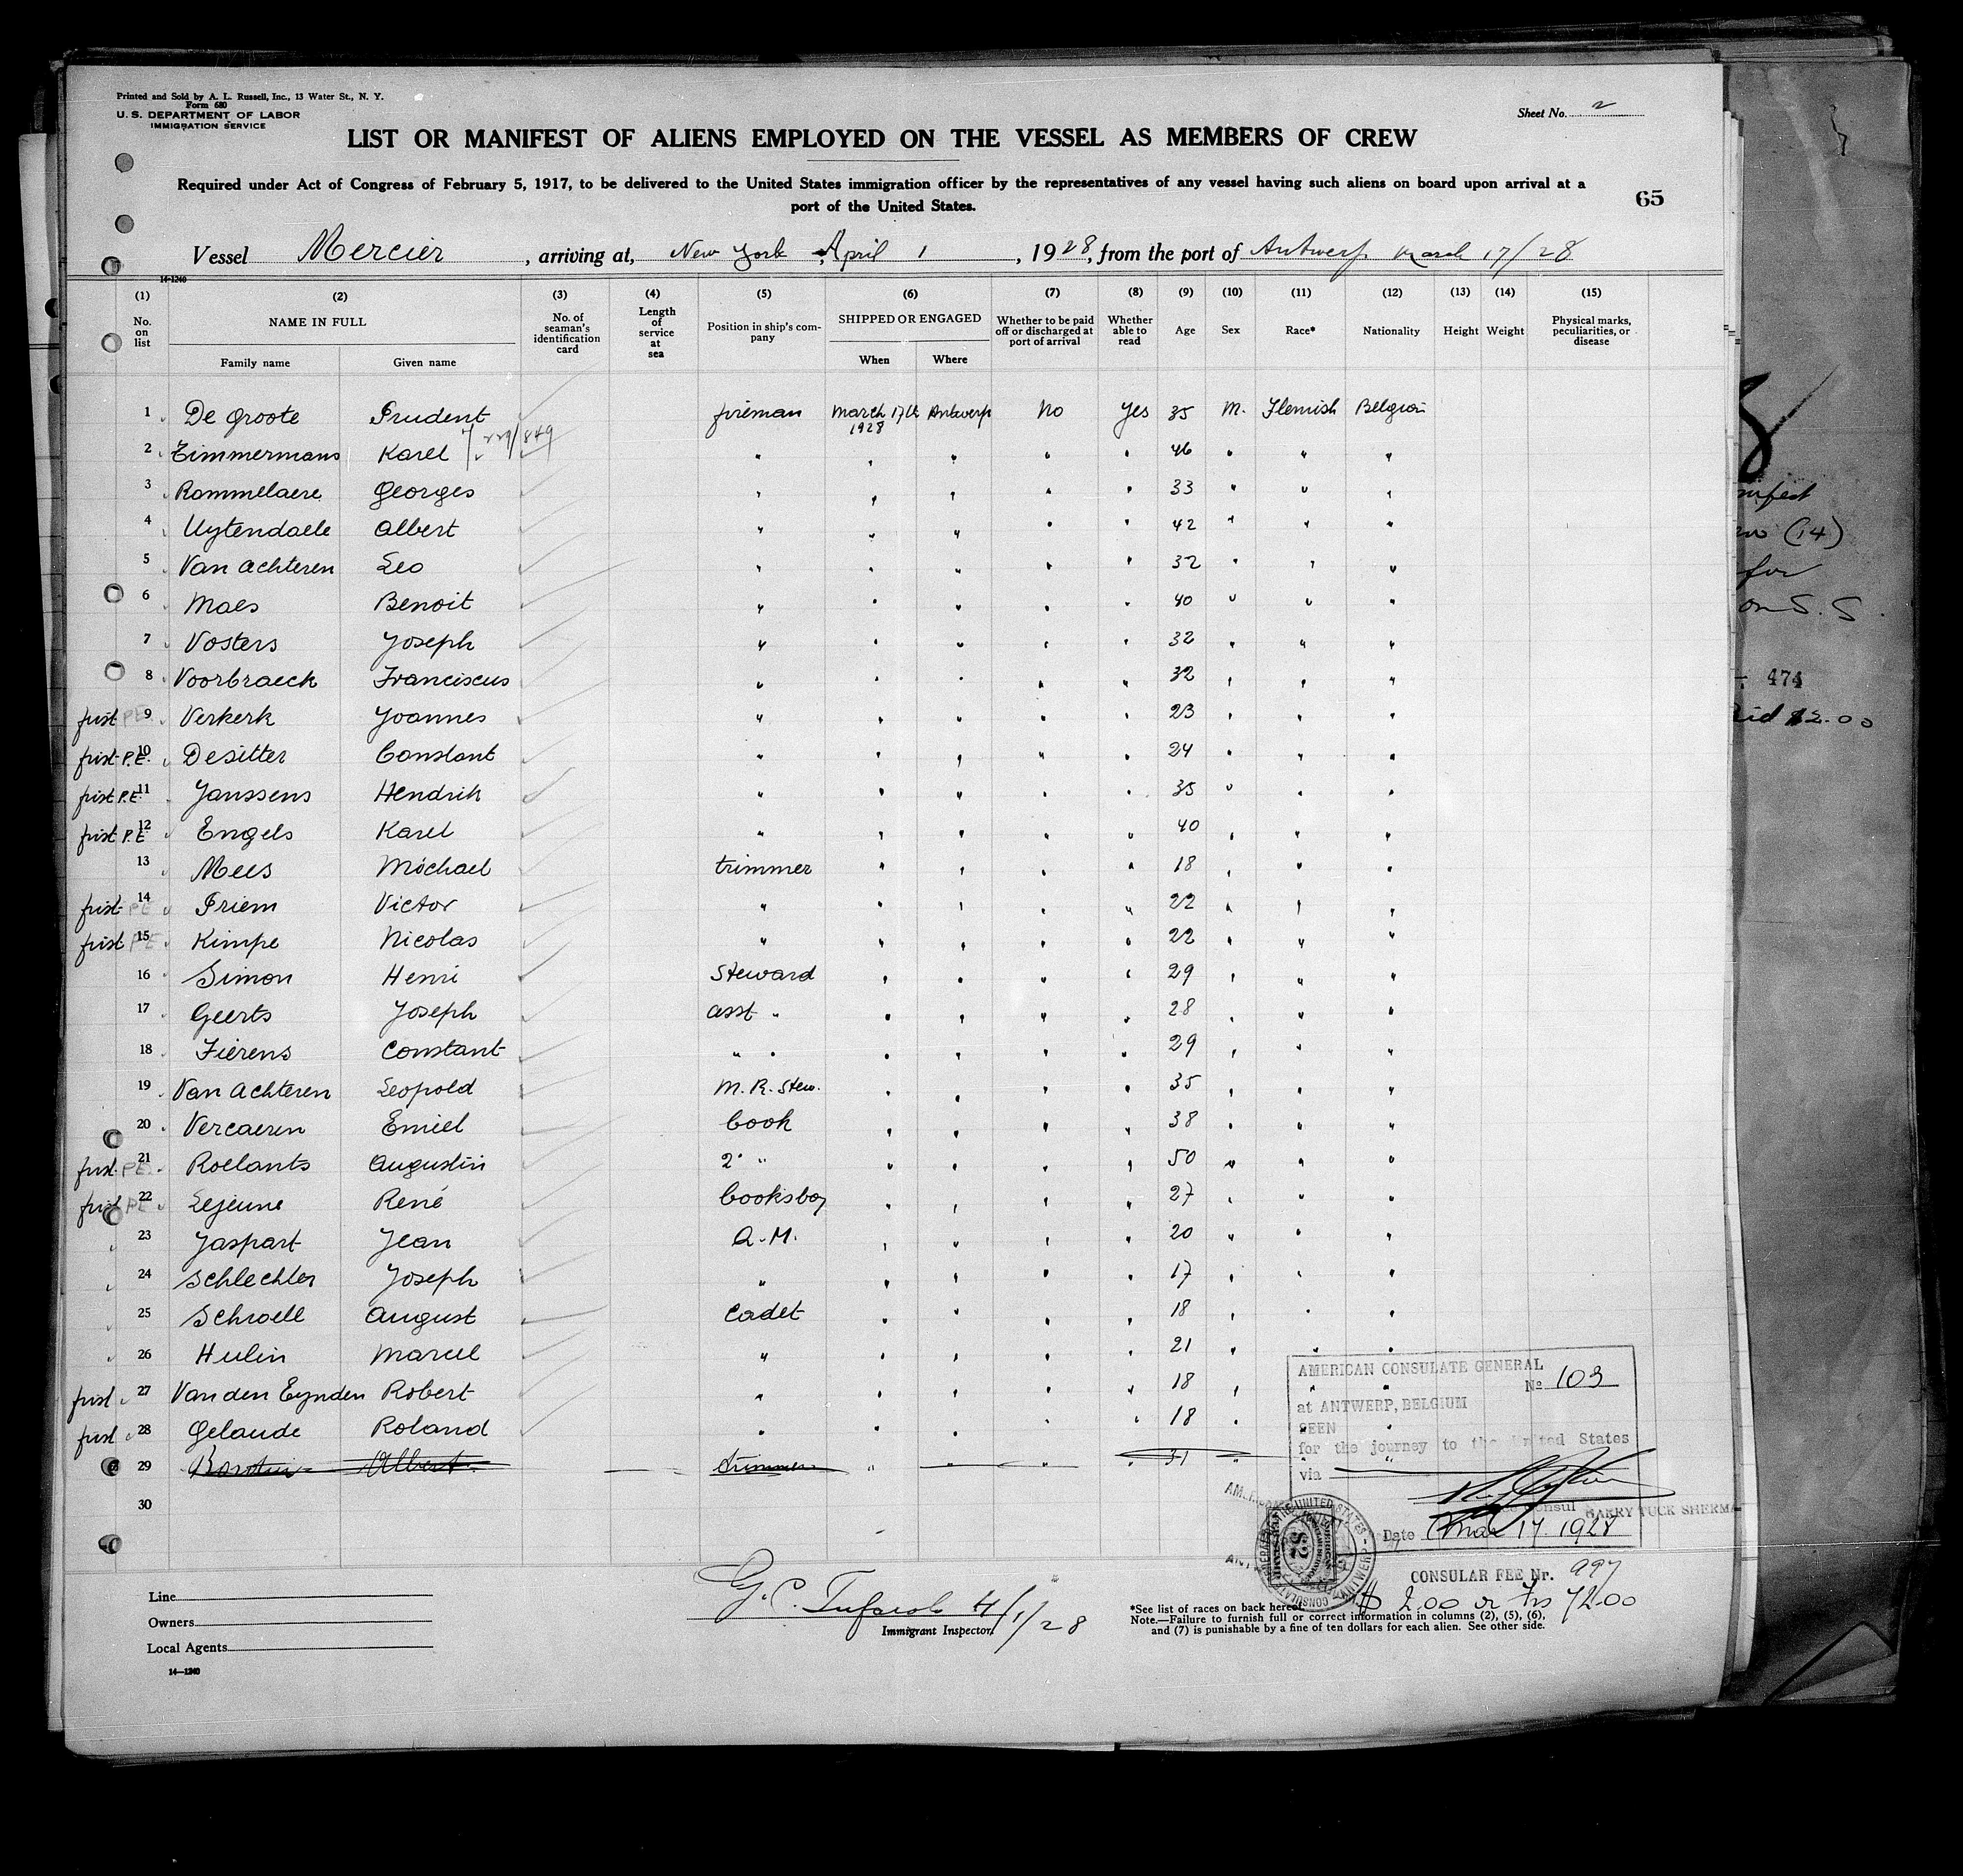 Printed and Sold by A. L. Russell, Inc., 13 Water St., N. Y.
Form 680
U. S. DEPARTMENT OF LABOR
IMMIGRATION SERVICE
Sheet No. 2
LIST OR MANIFEST OF ALIENS EMPLOYED ON THE VESSEL AS MEMBERS OF CREW
Required under Act of Congress of February 5, 1917, to be delivered to the United States immigration officer by the representatives of any vessel having such aliens on board upon arrival at a
port of the United States.
65
Vessel Mercier, arriving at, New York April 1, 1928, from the port of Antwerp March 17/28
14-1240
(1) (2) (3) (4) (5) (6) (7) (8) (9) (10) (11) (12) (13) (14) (15)
No. on list NAME IN FULL Family name Given name No. of seaman's identification card Length of service at sea Position in ship's company SHIPPED OR ENGAGED When Where Whether to be paid off or discharged at port of arrival Whether able to read Age Sex Race* Nationality Height Weight Physical marks, peculiarities, or disease
1 De Groote Prudent fireman March 17th 1928 Antwerp No Yes 35 M. Flemish Belgian
2 Timmermans Karel 229/849 " " " " " 46 " " "
3 Rommelaere Georges " " " " " 33 " " "
4 Uytendaele Albert " " " " " 42 " " "
5 Van Achteren Leo " " " " " 32 " " "
6 Maes Benoit " " " " " 40 " " "
7 Vosters Joseph " " " " " 32 " " "
8 Voorbraeck Franciscus " " " " " 32 " " "
first PE 9 Verkerk Joannes " " " " " 23 " " "
first P.E. 10 Desitter Constant " " " " " 24 " " "
first P.E. 11 Janssens Hendrik " " " " " 35 " " "
first P.E 12 Engels Karel " " " " " 40 " " "
13 Mees Michael trimmer " " " " 18 " " "
first PE 14 Priem Victor " " " " " 22 " " "
first PE 15 Kimpe Nicolas " " " " " 22 " " "
16 Simon Henri Steward " " " " 29 " " "
17 Geerts Joseph asst " " " " " 28 " " "
18 Fierens Constant " " " " " " 29 " " "
19 Van Achteren Leopold M. R. Stew. " " " " 35 " " "
20 Vercaeren Emiel Cook " " " " 38 " " "
first PE 21 Roelants Augustin 2° " " " " " 50 " " "
first PE 22 Lejeune René Cooksboy " " " " 27 " " "
23 Jaspart Jean Q.M. " " " " 20 " " "
24 Schlechter Joseph " " " " " 17 " " "
25 Schroell August Cadet " " " " 18 " " "
26 Hulin Marcel " " " " " 21 " " "
first 27 Van den Eynden Robert " " " " " 18 " " "
first 28 Gelaude Roland " " " " " 18 "
29 Albert trimmer " " " " 31 "
30
AMERICAN CONSULATE GENERAL
No 103
at ANTWERP, BELGIUM
SEEN
for the journey to the United States
via
Consul HARRY TUCK SHERMA
Date Mar 17 1928
CONSULAR FEE Nr. 997
$ 2.00 or Frs 72.00
Line
Owners
Local Agents
14-1240
G. C. 4/1/28
Immigrant Inspector.
*See list of races on back hereof.
Note.—Failure to furnish full or correct information in columns (2), (5), (6),
and (7) is punishable by a fine of ten dollars for each alien. See other side.
(14)
for
on S. S.
474
$2.00